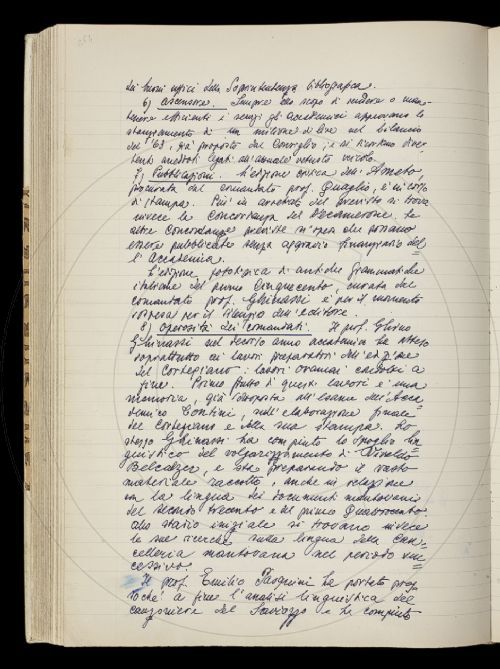 dei buoni uffici della Soprintendenza bibliografica.
6) Ascensore. Sempre allo scopo di rendere o man-
tenere efficienti i servizi gli Accademici approvano lo
stanziamento di un milione di lire nel bilancio
del '68, già proposto dal Consiglio, e si ricordano diver-
tenti aneddoti legati all'annale vetusto veicolo.
7) Pubblicazioni. L'edizione critica dell'Ameto,
procurata dal comandato prof. Quaglio, è in corso
di stampa. Più in arretrato del previsto si trova
invece la Concordanza del Decamerone. Le
altre Concordanze previste si spera che possano
essere pubblicate senza aggravio finanziario del-
l'Accademia.
L'edizione fototipica di antiche grammatiche
italiane del primo Cinquecento, curata dal
comandato prof. Ghinassi è per il momento
sospesa per il silenzio dell'editore.
8) Operosità dei comandati. Il prof. Ghino
Ghinassi nel decorso anno accademico ha atteso
soprattutto ai lavori preparatori dell'edizione
del Cortegiano: lavori ormai condotti a
fine. Primo frutto di questi lavori è una
memoria, già sottoposta all'esame dell'Acca-
demico Contini, sull'elaborazione finale
del Cortegiano e sulla sua stampa. Lo
stesso Ghinassi ha compiuto lo spoglio lin-
guistico del volgarizzamento di Vivaldo
Belcalzer, e sta preparando il vasto
materiale raccolto, anche in relazione
con la lingua dei documenti mantovani
del secondo Trecento e del primo Quattrocento.
Allo stadio iniziale si trovano invece
le sue ricerche sulla lingua della Can-
celleria mantovana nel periodo suc-
cessivo.
Il prof. Emilio Pasquini ha portato pres-
soché a fine l'analisi linguistica del
canzoniere del Saviozzo e ha compiuto